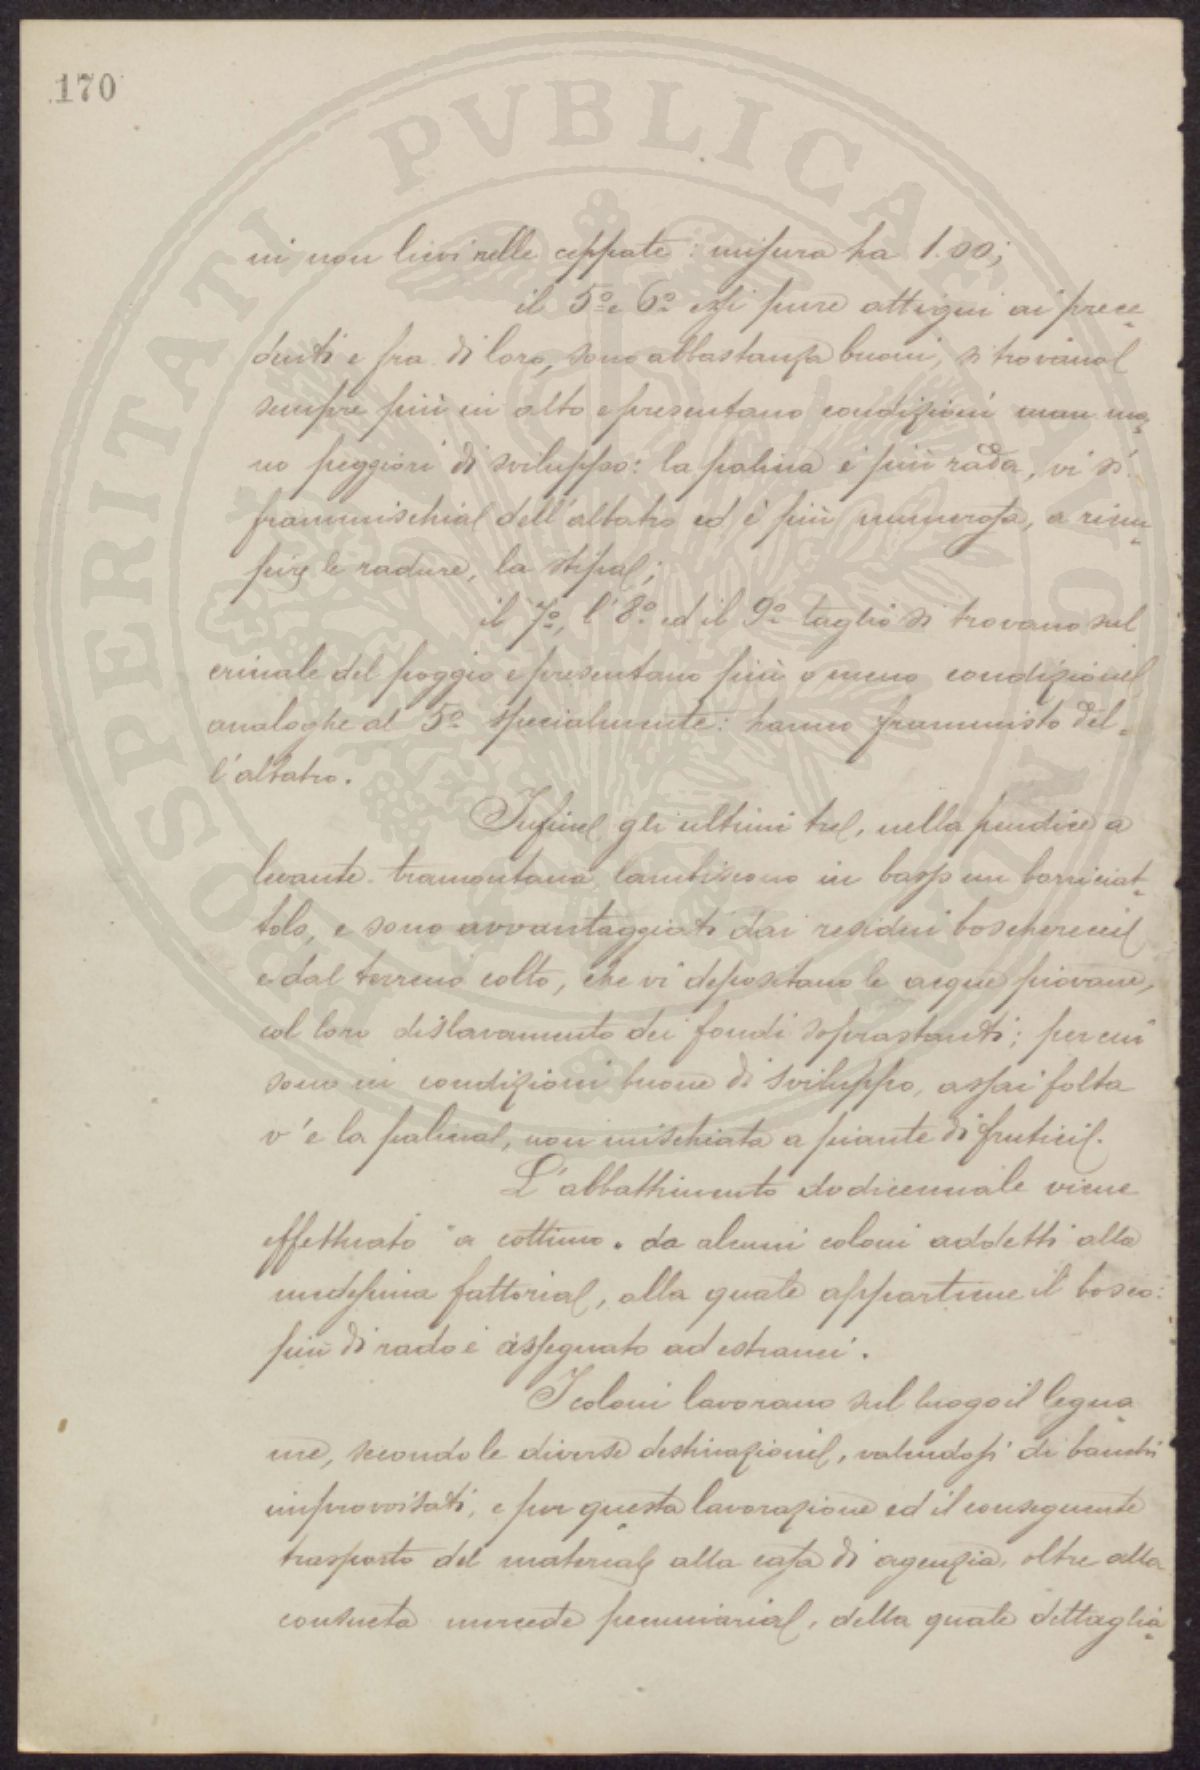 170
ni non lievi nelle ceppate: misura ha 1.00;
il 5º e 6º essi pure attigui ai prece=
denti e fra di loro, sono abbastanza buoni, si trovano
sempre più in alto e presentano condizioni man ma=
no peggiori di sviluppo: la palina è più rada, vi si
frammischia dell'albatro ed è più numerosa, a riem=
pire le radure, la stipa;
il 7º, l'8º ed il 9º taglio si trovano sul
crinale del poggio e presentano più o meno condizioni
analoghe al 5º specialmente: hanno frammisto del=
l'albatro.
Infine gli ultimi tre, nella pendice a
levante-tramontana lambiscono in basso un borriciat=
tolo, e sono avvantaggiati dai residui boscherecci
e dal terreno colto, che vi depositano le acque piovane,
col loro dislavamento dei fondi soprastanti; per cui
sono in condizioni buone di sviluppo, assai folta
v'è la palina, non mischiata a piante di frutici.
L'abbattimento dodicennale viene
effettuato "a cottimo" da alcuni coloni addetti alla
medesima fattoria, alla quale appartiene il bosco:
più di rado è assegnato ad estranei.
I coloni lavorano sul luogo il legna
me, secondo le diverse destinazioni, valendosi di banchi
improvvisati, e per questa lavorazione ed il conseguente
trasporto del materiale alla casa di agenzia, oltre alla
consueta mercede pecuniaria, della quale dettaglia=
PROSPERITATI PVBLICAE AVGENDAE